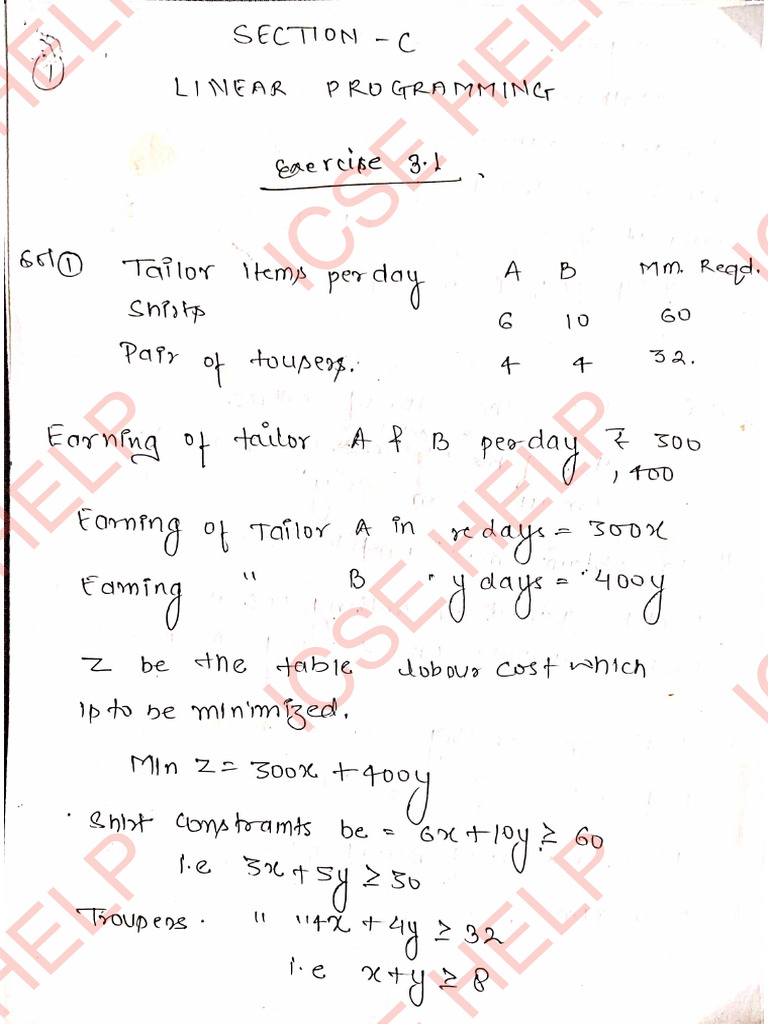 1
SECTION - C
LINEAR PROGRAMMING
Exercise 3.1
Sol 1 Tailor items per day A B Mm. Reqd.
Shirts 6 10 60
Pair of tousers. 4 4 32.
Earning of tailor A & B per day ₹ 300
, 400
Earning of Tailor A in x days = 300x
Earning " B " y days = 400y
Z be the table labour cost which
is to be minimized.
Min Z = 300x + 400y
Shirt constraints be = 6x + 10y ≥ 60
i.e 3x + 5y ≥ 30
Trousers. " " 4x + 4y ≥ 32
i.e x + y ≥ 8
ICSE HELP
ICSE HELP
ICSE HELP
ICSE HELP
ICSE HELP
ICSE HELP